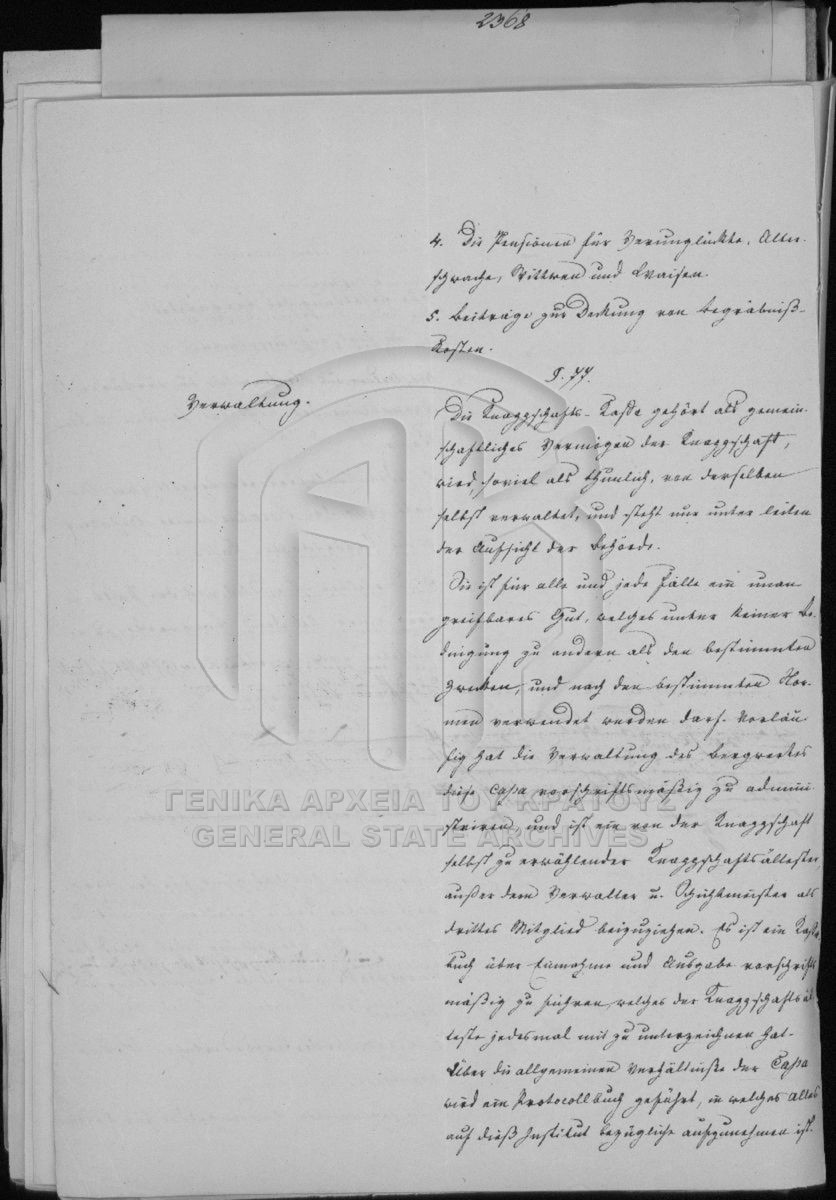 2368
4. Die Pensionen für Verunglückte, Alters-
schwache, Wittwen und Waisen.
5. Beiträge zur Deckung von Begräbniß-
kosten.
§. 77.
Verwaltung.
Die Knappschafts-Kasse gehört als gemein-
schaftliches Vermögen der Knappschaft,
wird, soviel als thunlich, von derselben
selbst verwaltet, und steht nur unter
der Aufsicht der Behörde.
Sie ist für alle und jede Fälle ein unan
greifbares Gut, welches unter keiner Be-
dingung zu andern als den bestimmten
Zwecken, und nach den bestimmten Nor-
men verwendet werden darf. Vorläu-
fig hat die Verwaltung des Bergwerkes
diese Cassa vorschriftsmäßig zu admini-
striren, und ist ein von der Knappschaft
selbst zu erwählender Knappschaftsältester,
außer dem Verwalter u. Schichtmeister als
drittes Mitglied beizuziehen. Es ist ein Kassa
buch über Einnahme und Ausgabe vorschrifts
mäßig zu führen, welches der Knappschaftsäl
teste jedesmal mit zu unterzeichnen hat.
Über die allgemeinen Verhältniße der Cassa
wird ein Protocollbuch geführt, in welches Alles
auf dieß Institut bezügliche aufzunehmen ist.
ΓΕΝΙΚΑ ΑΡΧΕΙΑ ΤΟΥ ΚΡΑΤΟΥΣ
GENERAL STATE ARCHIVES